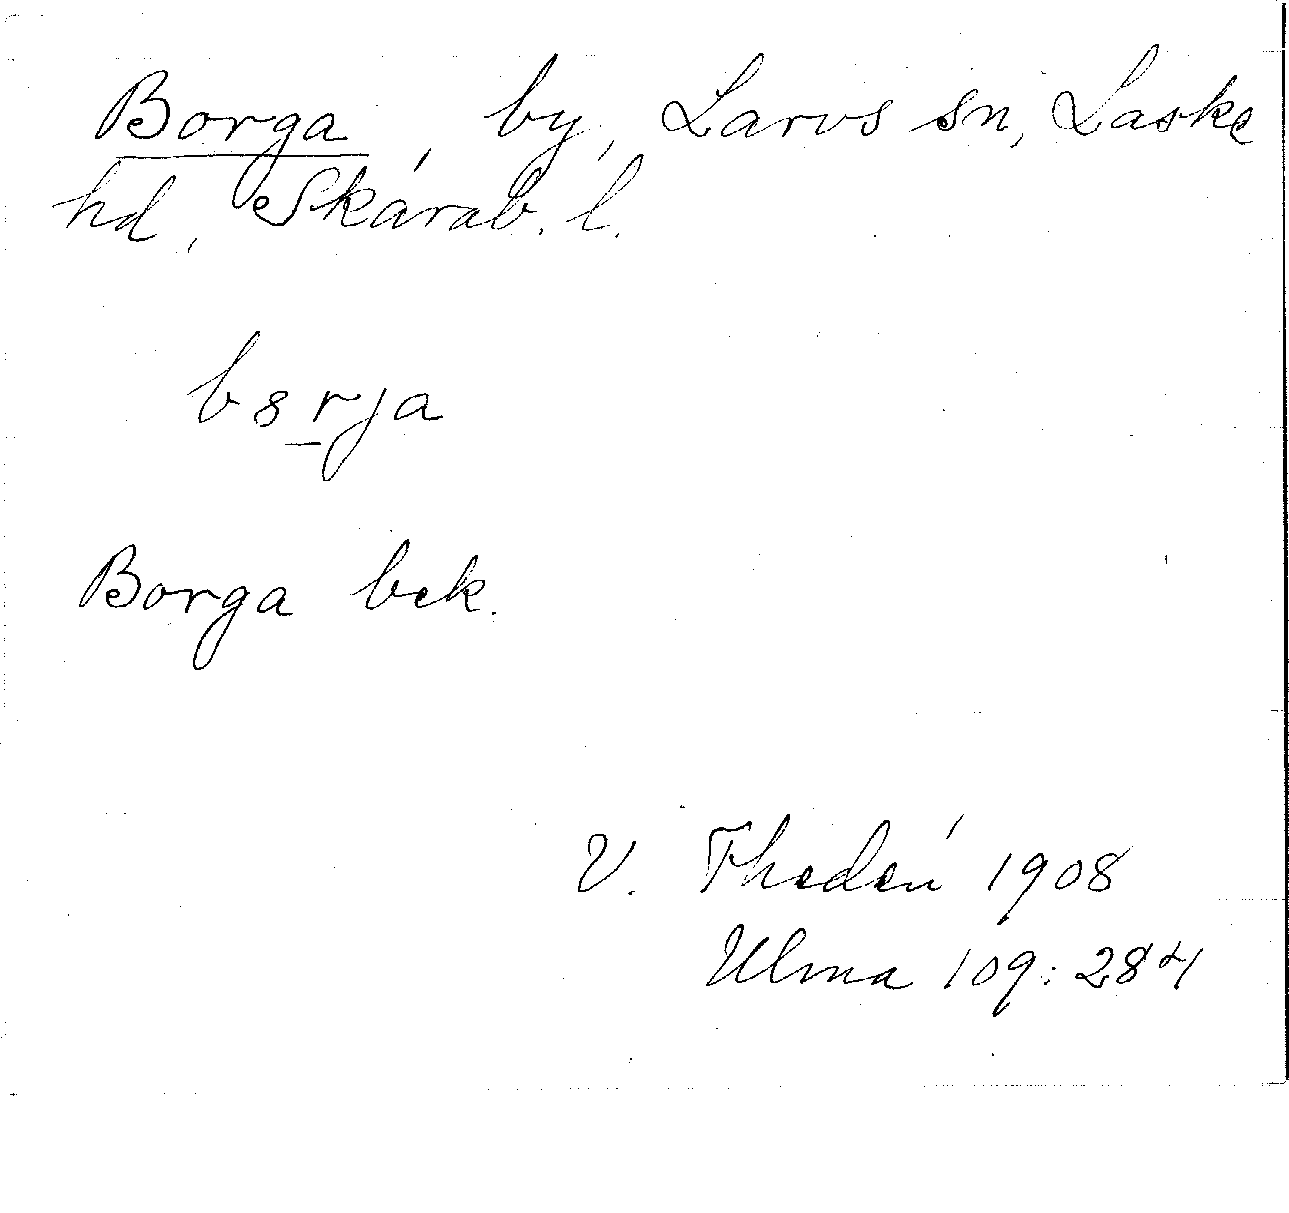 Borga, by, Larvs sn, Laske
hd, Skarab. l.
bsrja
Borga bek.
V. Thedén 1908
Ulma 109:284